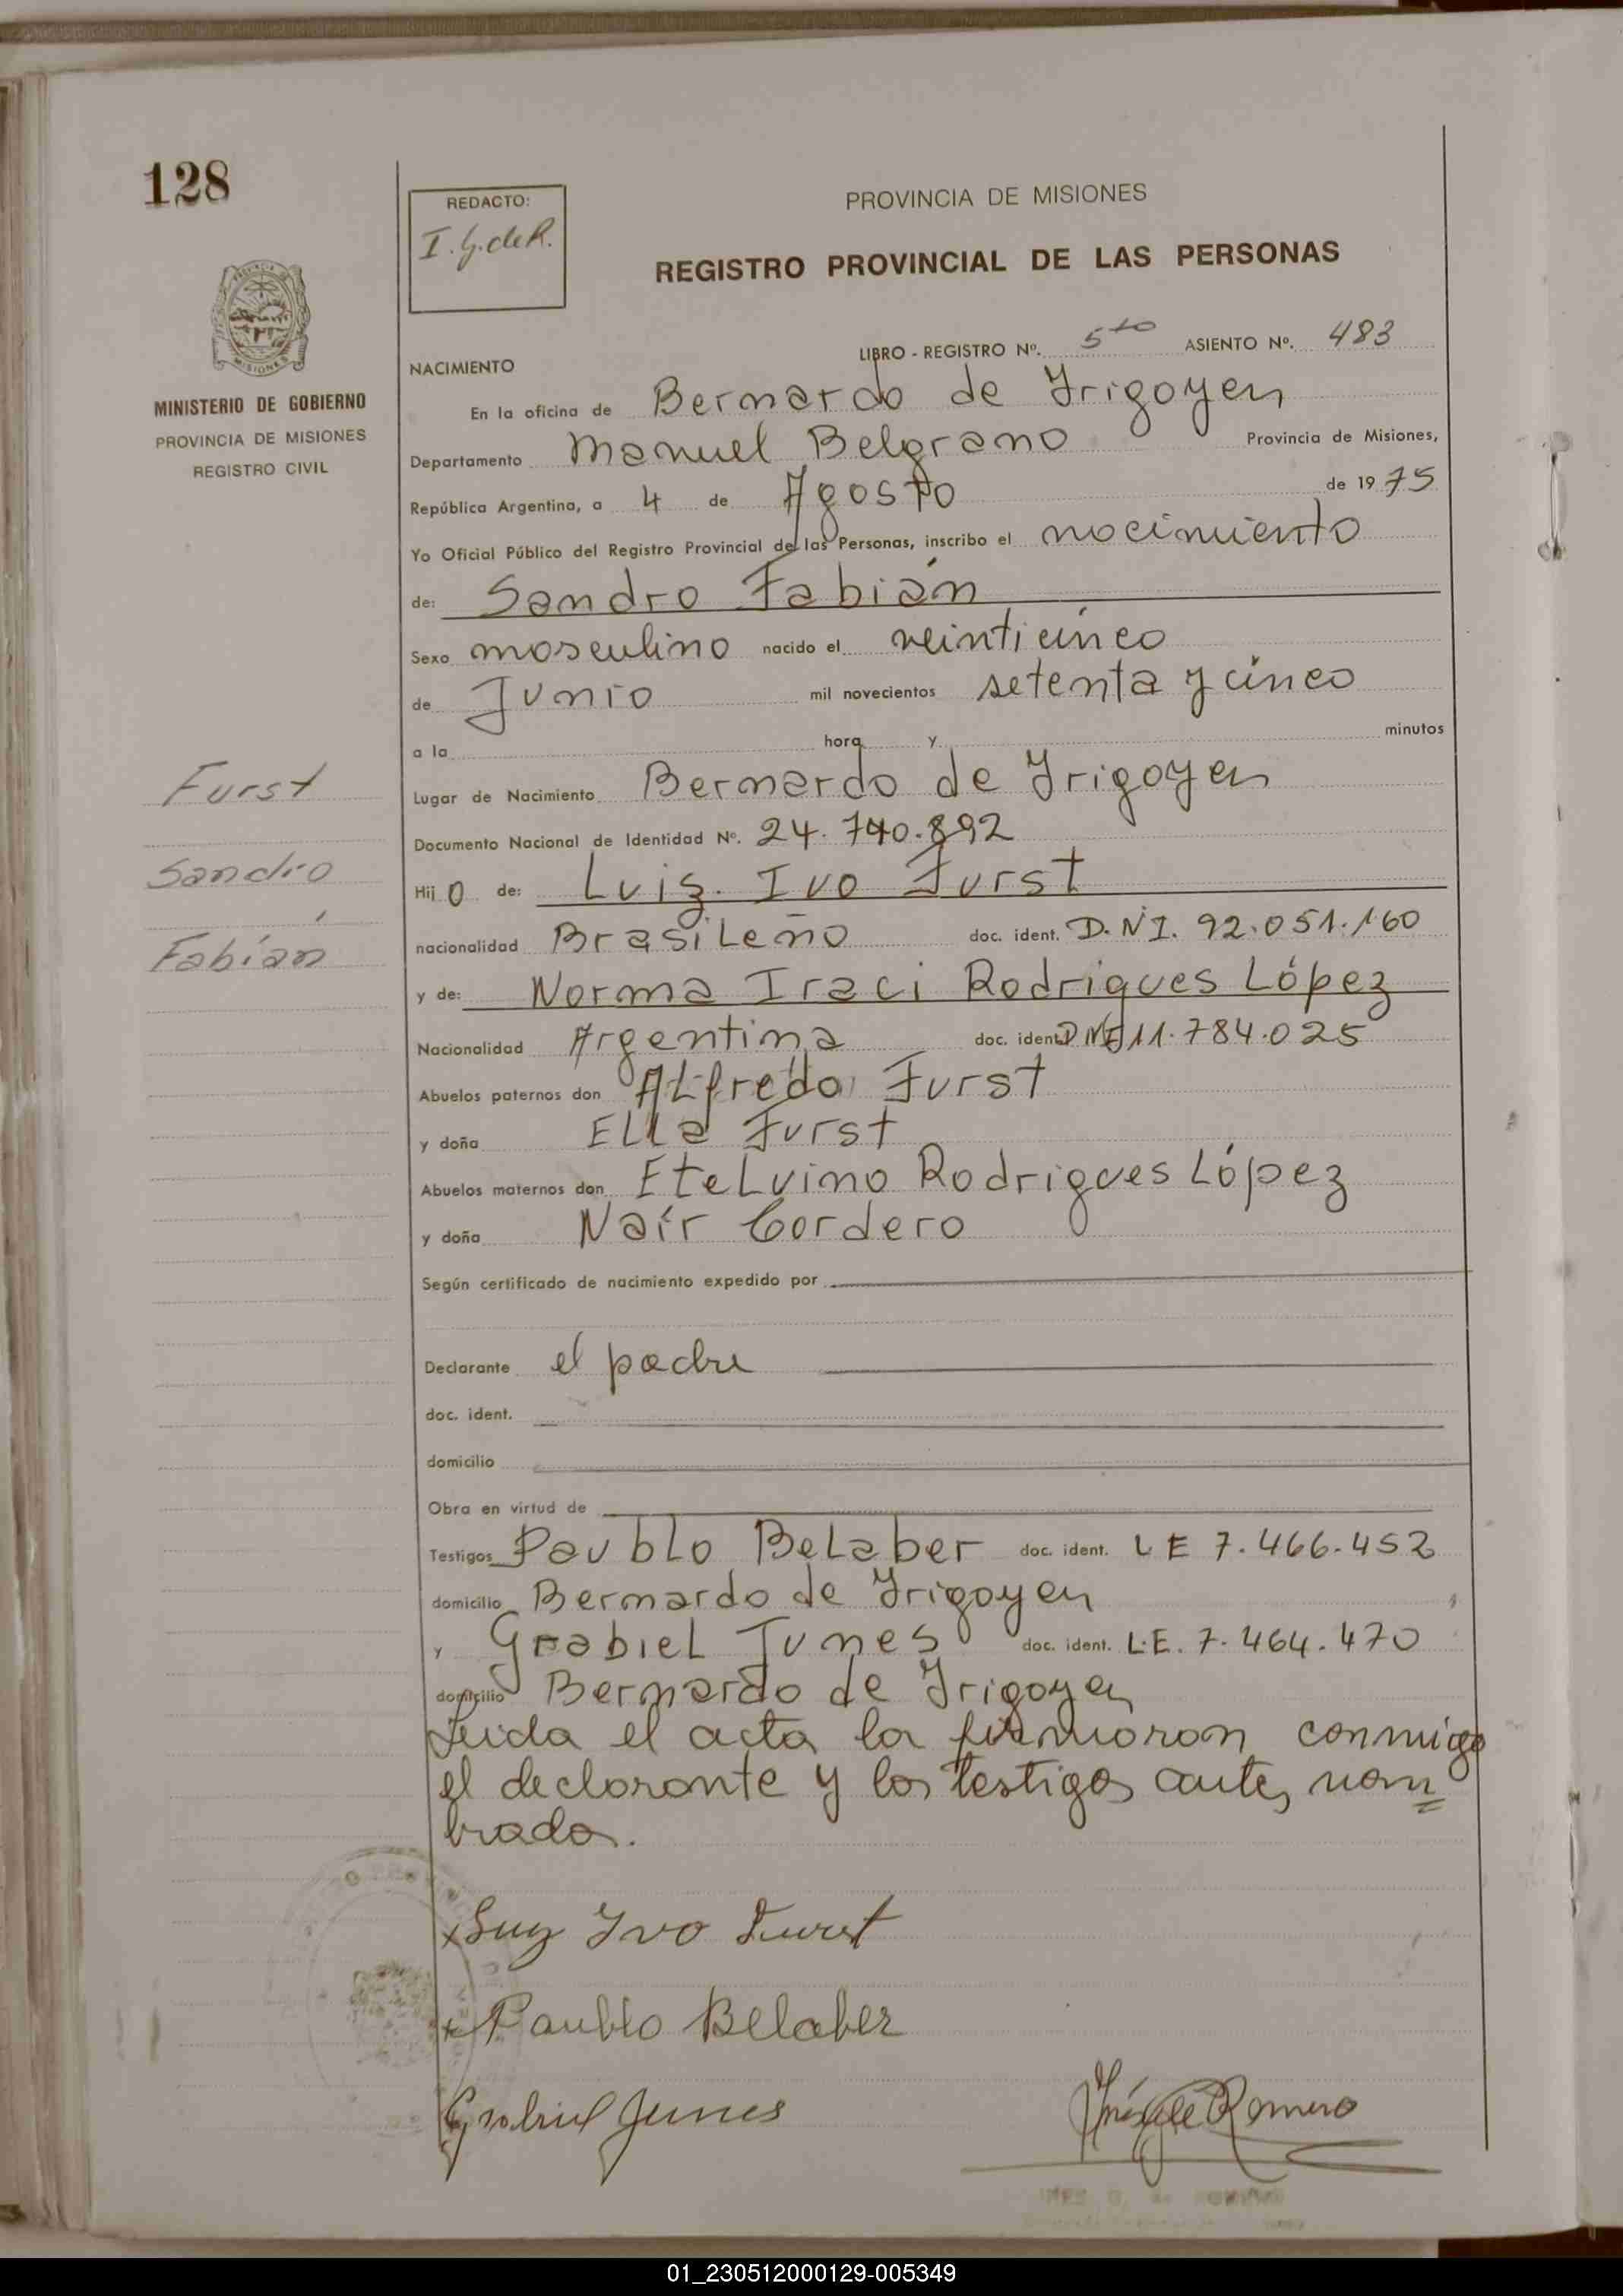 128
REDACTO:
I. G. de R.
PROVINCIA DE MISIONES
REGISTRO PROVINCIAL DE LAS PERSONAS
MISIONES
MINISTERIO DE GOBIERNO
PROVINCIA DE MISIONES
REGISTRO CIVIL
LIBRO - REGISTRO Nº. 5to ASIENTO Nº. 483
NACIMIENTO
En la oficina de Bernardo de Irigoyen
Departamento Manuel Belgrano Provincia de Misiones,
República Argentina, a 4 de Agosto de 19 75
Yo Oficial Público del Registro Provincial de las Personas, inscribo el nacimiento
de: Sandro Fabián
Sexo masculino nacido el veinticinco
de Junio mil novecientos setenta y cinco
a la hora y minutos
Furst
Sandro
Fabián
Lugar de Nacimiento Bernardo de Irigoyen
Documento Nacional de Identidad Nº. 24.740.892
Hij o de: Luiz. Ivo Furst
nacionalidad Brasileño doc. ident. D.N.I. 92.051.160
y de: Norma Iraci Rodrigues López
Nacionalidad Argentina doc. ident. DNI 11.784.025
Abuelos paternos don Alfredo Furst
y doña Ella Furst
Abuelos maternos don Etelvino Rodrigues López
y doña Naír Cordero
Según certificado de nacimiento expedido por
Declarante el padre
doc. ident.
domicilio
Obra en virtud de
Testigos Paublo Belaber doc. ident. L E 7.466.452
domicilio Bernardo de Irigoyen
y Grabiel Junes doc. ident. L.E. 7.464.470
domicilio Bernardo de Irigoyen
Leida el acta la firmaron conmigo
el declarante y los testigos antes nom=
brados.
x Luiz Ivo Furst
x Paublo Belaber
Grabriel Junes
Inés G de Romero
01_230512000129-005349